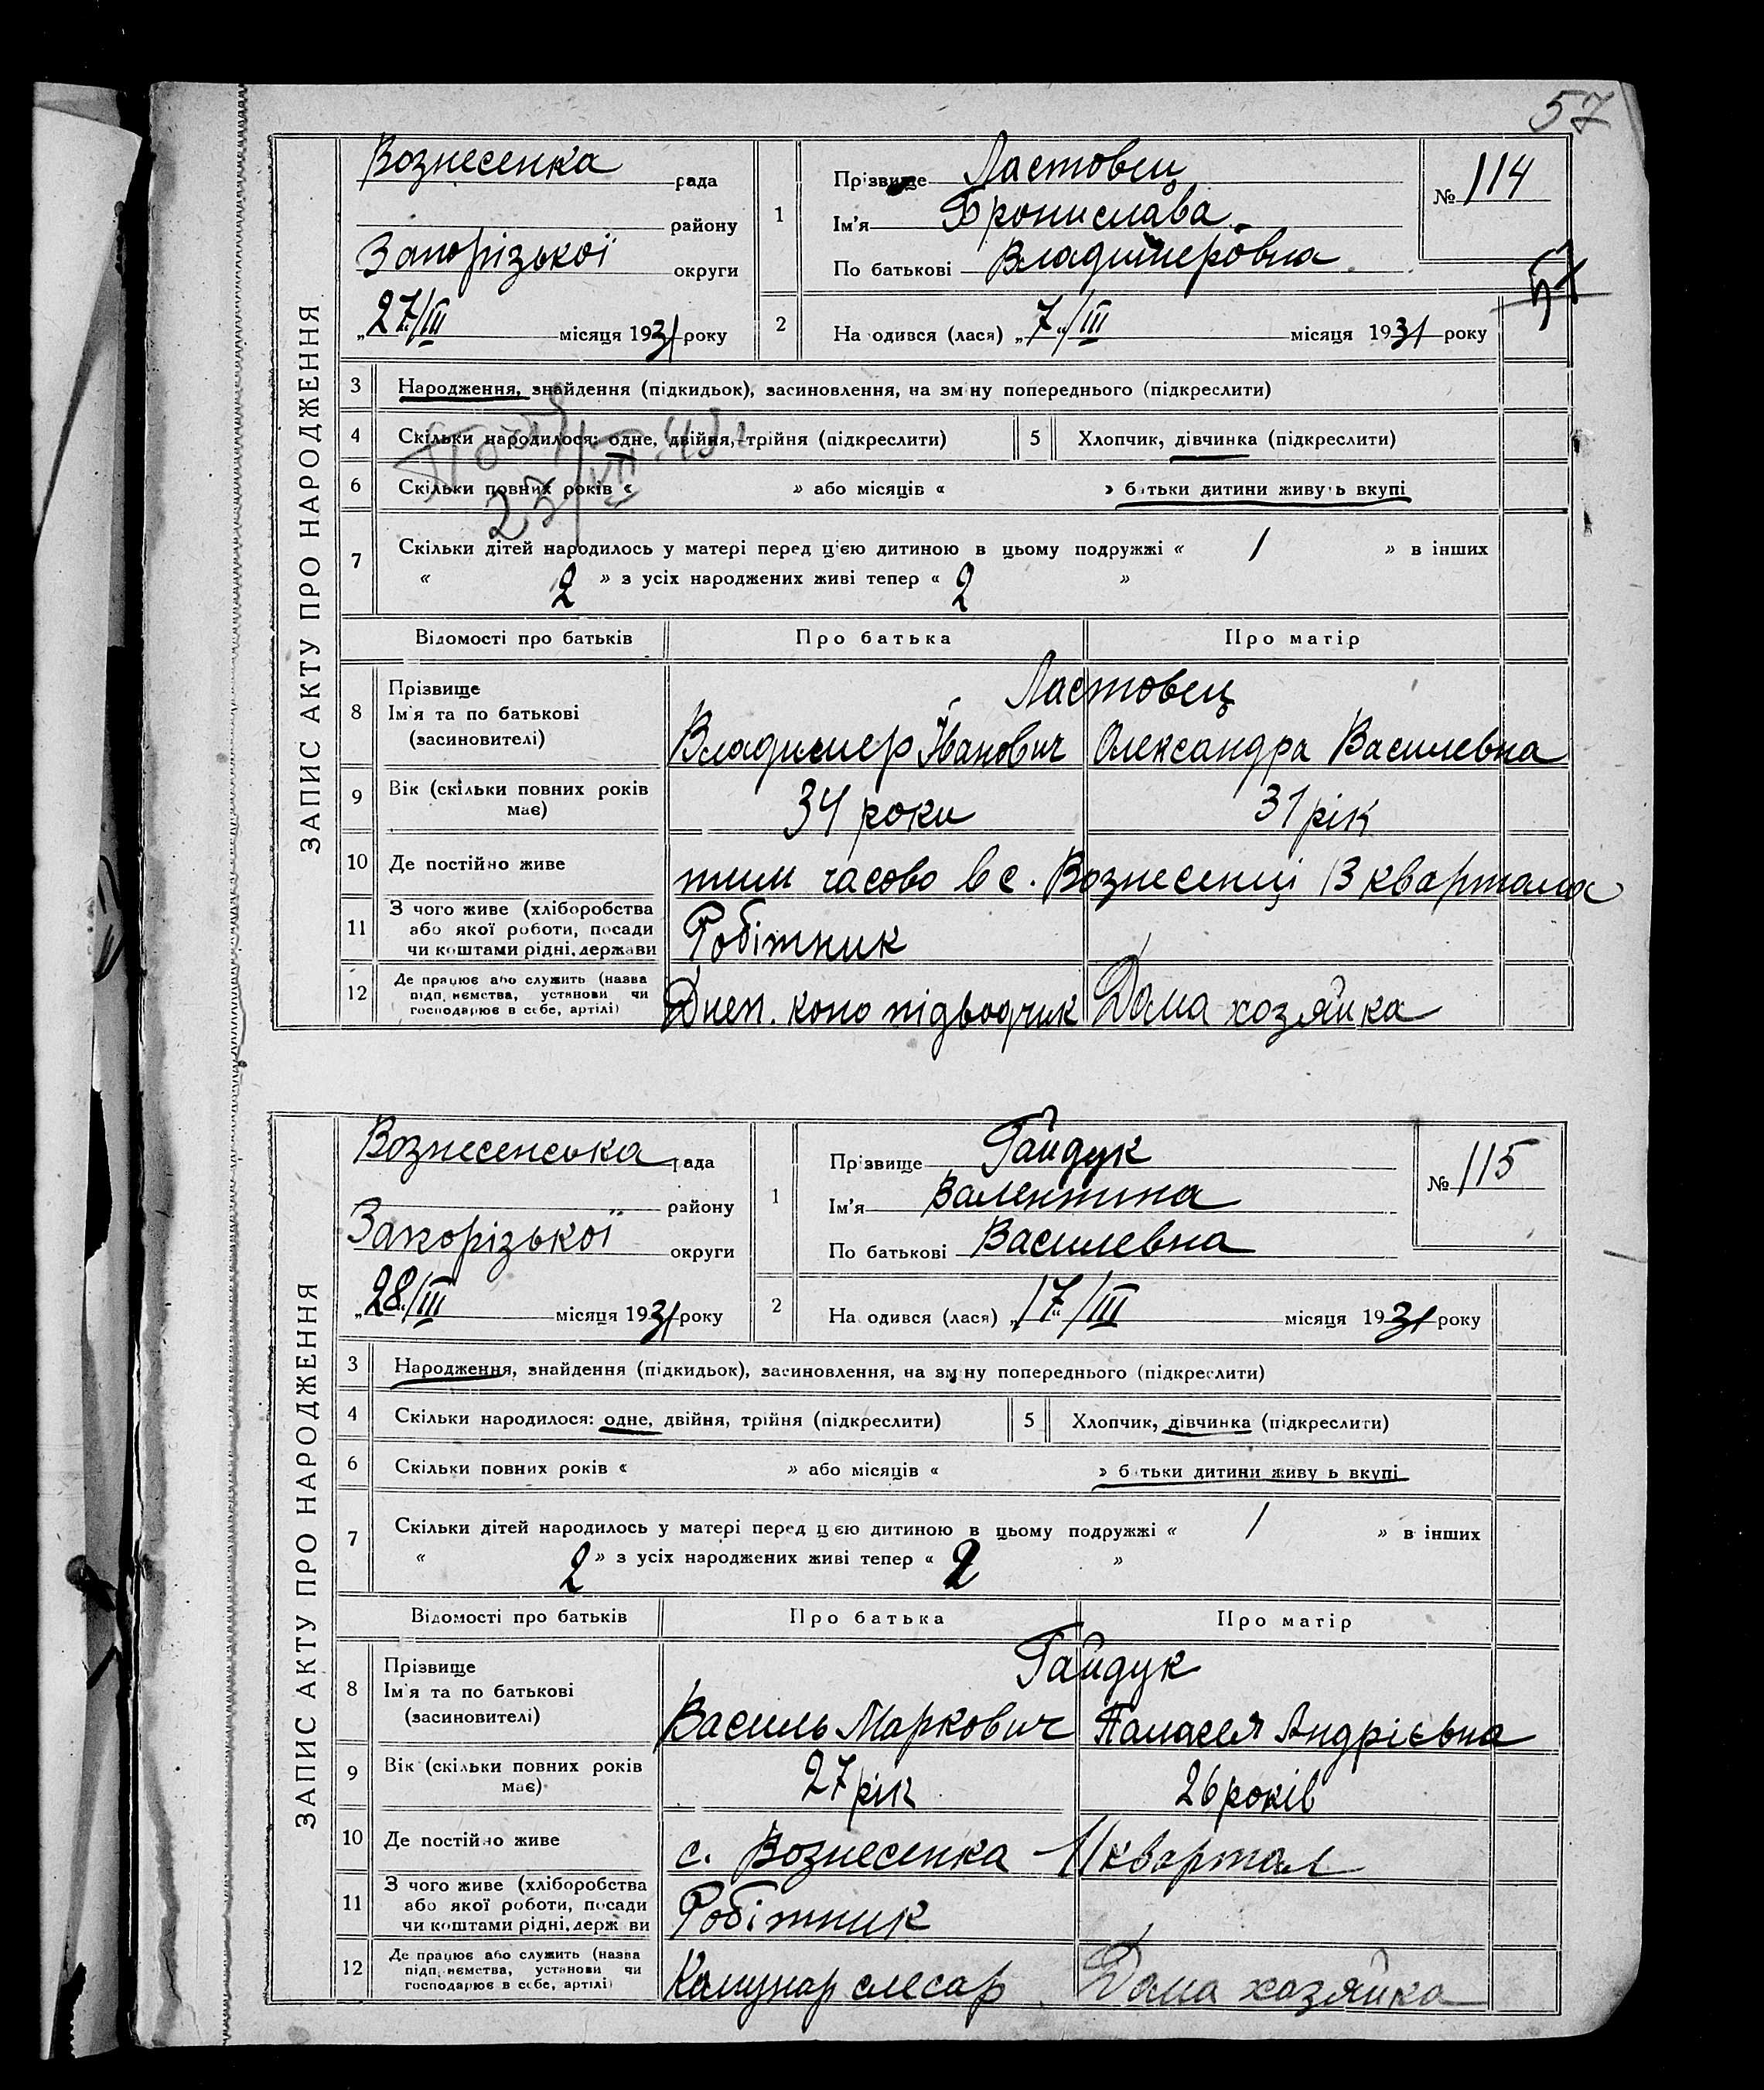 57
ЗАПИС АКТУ ПРО НАРОДЖЕННЯ
Вознесенка рада
району
Запорізької округи
„27/III місяця 1931 року
1 Прізвище Ластовец
Ім'я Бронислава
По батькові Владимеровна
№ 114
2 На одився (лася) „7/III місяця 1931 року
3 Народження, знайдення (підкидьок), засиновлення, на зміну попереднього (підкреслити)
4 Скільки народилося: одне, двійня, трійня (підкреслити) 5 Хлопчик, дівчинка (підкреслити)
6 Скільки повних років « » або місяців « » батьки дитини живуть вкупі
7 Скільки дітей народилось у матері перед цією дитиною в цьому подружжі « 1 » в інших
« 2 » з усіх народжених живі тепер « 2 »
Відомості про батьків Про батька Про матір
8 Прізвище Ім'я та по батькові (засиновителі)
Ластовец
Владимер Іванович Олександра Василевна
9 Вік (скільки повних років має) 34 роки 31 рік
10 Де постійно живе тим часово в с. Вознесенці 13 квартала
11 З чого живе (хліборобства або якої роботи, посади чи коштами рідні, держави Робітник
12 Де працює або служить (назва підп иємства, установи чи господарює в себе, артілі) Днеп. коно підводчик Дома хозяйка
ЗАПИС АКТУ ПРО НАРОДЖЕННЯ
Вознесенська рада
району
Запорізької округи
„28/III місяця 1931 року
1 Прізвище Гайдук
Ім'я Валентина
По батькові Василевна
№ 115
2 На одився (лася) „17/III місяця 1931 року
3 Народження, знайдення (підкидьок), засиновлення, на зміну попереднього (підкреслити)
4 Скільки народилося: одне, двійня, трійня (підкреслити) 5 Хлопчик, дівчинка (підкреслити)
6 Скільки повних років « » або місяців « » батьки дитини живуть вкупі
7 Скільки дітей народилось у матері перед цією дитиною в цьому подружжі « 1 » в інших
« 2 » з усіх народжених живі тепер « 2 »
Відомості про батьків Про батька Про матір
8 Прізвище Ім'я та по батькові (засиновителі)
Гайдук
Василь Маркович Паласея Андрієвна
9 Вік (скільки повних років має) 27 рік 26 років
10 Де постійно живе с. Вознесенка - 11 квартал
11 З чого живе (хліборобства або якої роботи, посади чи коштами рідні, держ ви Робітник
12 Де працює або служить (назва підп иємства, установи чи господарює в себе, артілі) Комунар слесар Дома хозяйка